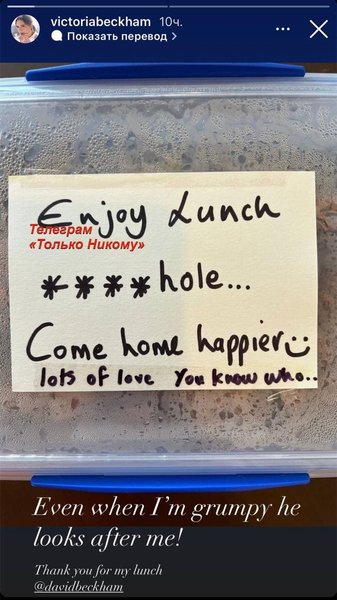 victoriabeckham 10ч.
Показать перевод >
Enjoy Lunch
Телеграм
«Только Никому»
****hole...
Come home happier
lots of love You know who..
Even when I'm grumpy he
looks after me!
Thank you for my lunch
@davidbeckham